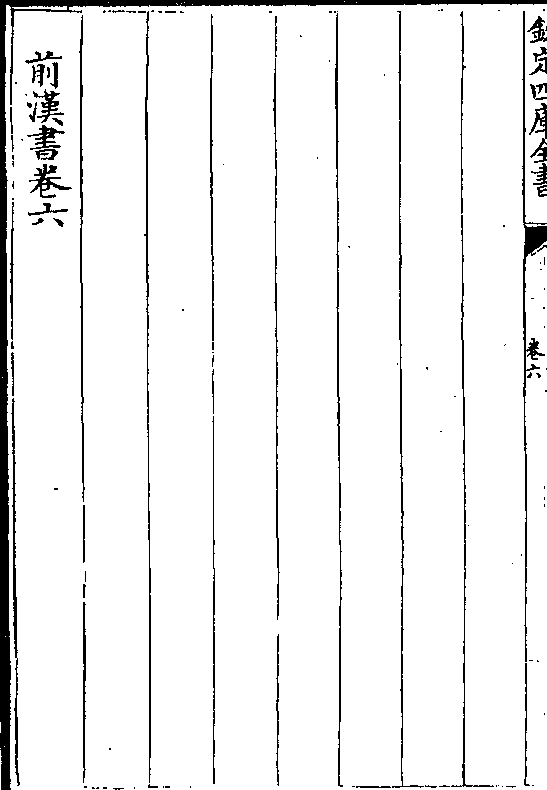 欽定四庫全書
卷六
前漢書卷六